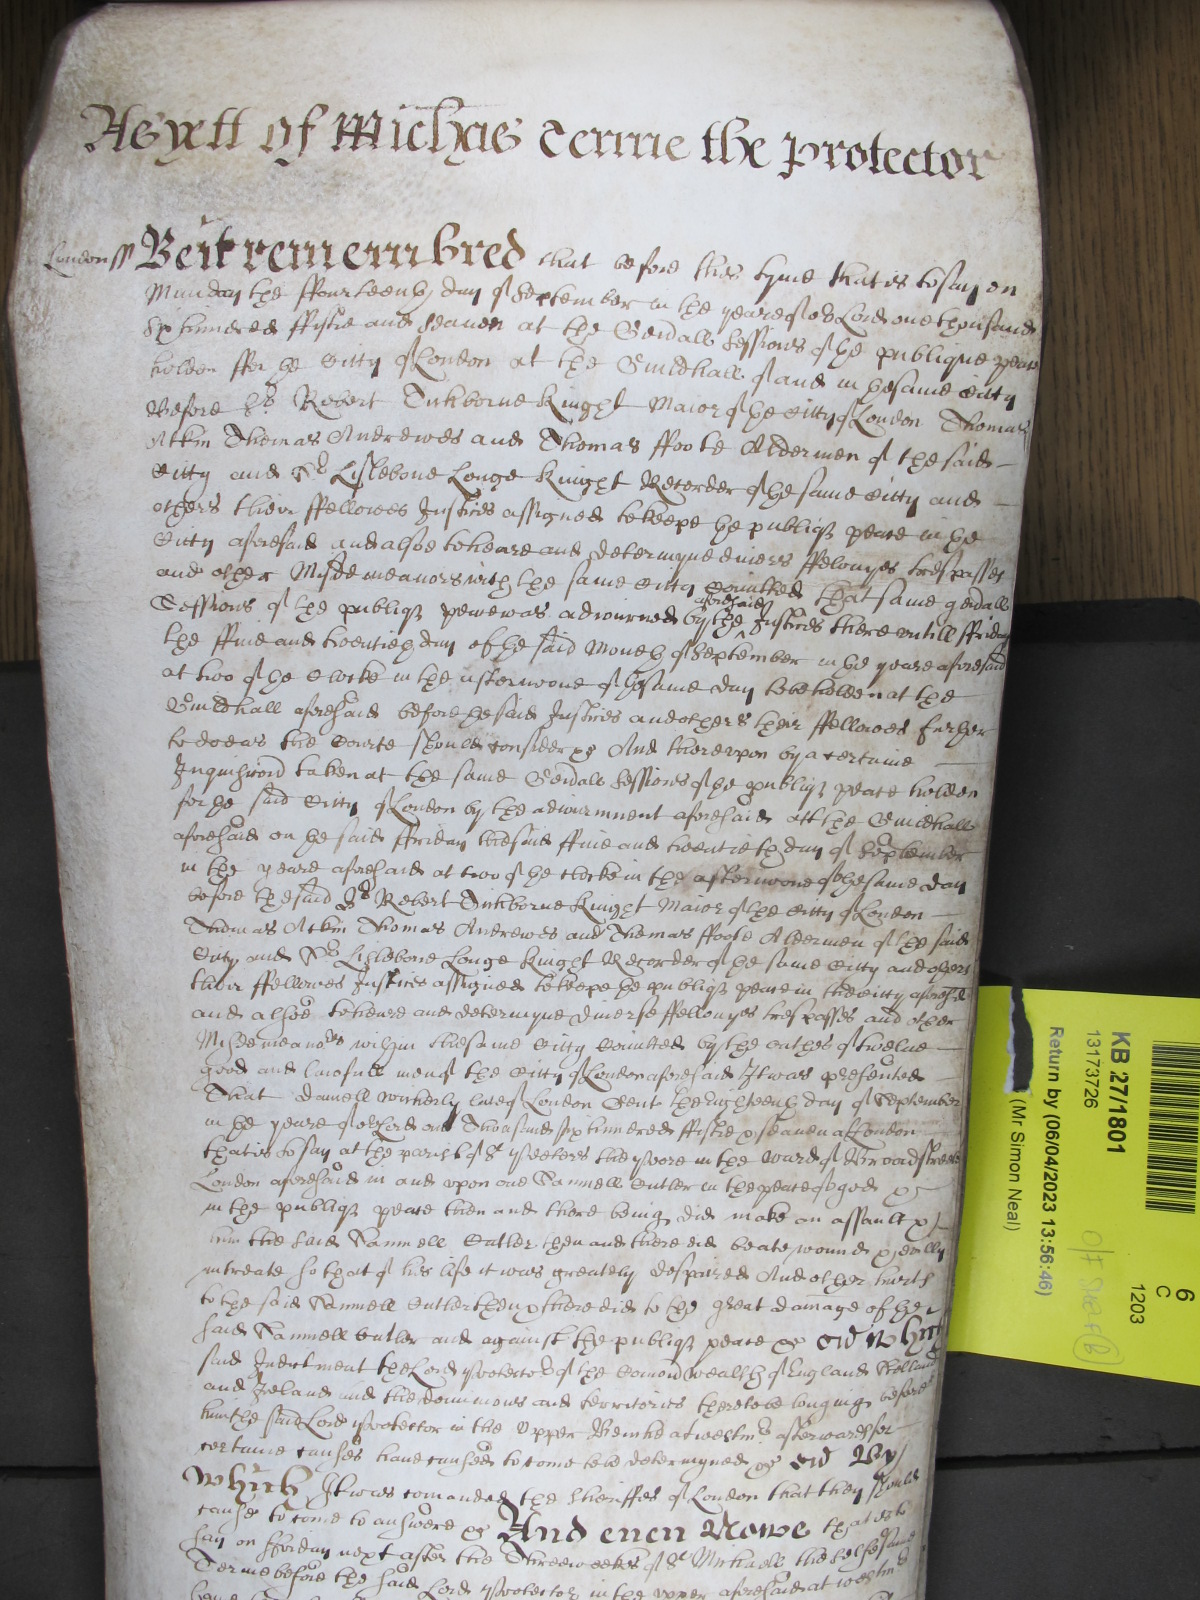 As yett of Michās Terme the Protector
London ss Be it remembred that before this tyme that is to say on
Munday the ffourteenth day of September in the yeare of oʳ Lord one thousand
six hundred ffiftie and seaven at the Gen̄all Sessions of the publique peace
holden ffor the Citty of London at the Guildhall of and in the same Citty
Before Sʳ Robert Tichborne Knight Maior of the Citty of London Thomas
Atkin Thomas Andrewes and Thomas ffoote Aldermen of the said
Citty and Sʳ Lislebone Longe Knight Recorder of the same Citty and
others their ffellowes Justices assigned to keepe the publiq₃ peace in the
Citty aforesaid and alsoe to heare and determyne divers ffelonyes trespasses
and other Misdemeanors with the same Citty Com̄itted that same gen̄all
Sessions of the publiq₃ peace was adiourned by the aforesaid Justices there untill ffriday
the ffive and twentieth day of the said Moneth of September in the yeare aforesaid
at two of the Clocke in the afternoone of the same day to be holden at the
Guildhall aforesaid before the said Justices and others their ffellowes further
to doe as the Courte should consider &c And thereupon by a certaine
Inquisic̄on taken at the same Gen̄all Sessions of the publiq₃ peace holden
for the said Citty of London by the adiurnment aforesaid att the Guildhall
aforesaid on the said ffriday the said ffive and twentieth day of September
in the yeare aforesaid at two of the clocke in the afternoone of the same day
before the said Sʳ Robert Tichborne Knight Maior of the Citty of London
Thomas Atkin Thomas Andrewes and Thomas ffoote Aldermen of the said
Citty and Sʳ Lislebone Longe Knight Recorder of the same Citty and others
their ffellowes Justices assigned to keepe the publiq₃ peace in the Citty aforesaid
and alsoe to heare and determyne diverse ffellonyes trespasses and other
Misdemeanoʳs within the same Citty Com̄itted by the oathes of twelve
good and lawfull men of the Citty of London aforesaid It was presented
That Daniell Winherly late of London Gent the Eighteenth day of September
in the yeare of oʳ Lord one Thousand six hundred ffiftie & seaven att London
that is to say at the parish of Sᵗ Peeters the Poore in the ward of Broadstreete
London aforesaid in and upon one Samuell Cutler in the peace of god &
in the publiq₃ peace then and there being did make an assault &
him the said Samuell Cutler then and there did beate wound & evilly
intreate so that of his life it was greately despaired And other hurts
to the said Samuell Cutler then & there did to the great damage of the
said Samuell Cutler and against the publiq₃ peace &c Wᶜʰ
said Indictment the Lord Protectoʳ of the Com̄onwealth of England Scotland
and Ireland and the dominions and territories thereto belonging before
him the said Lord Protector in the Upper Bench at westmʳ afterwards for
certaine causes have caused to come to be determyned &c By
which It was comanded the Sheriffes of London that they should
cause to come to answere &c And even Nowe that is to
say on ffriday next after the Three weekes of Sᵗ Michaell the selfe same
Terme before the said Lord Protector in the upper aforesaid at westmʳ
KB 27/1801
13173726
Return by (06/04/2023 13:56:46)
(Mr Simon Neal)
6
C
1203